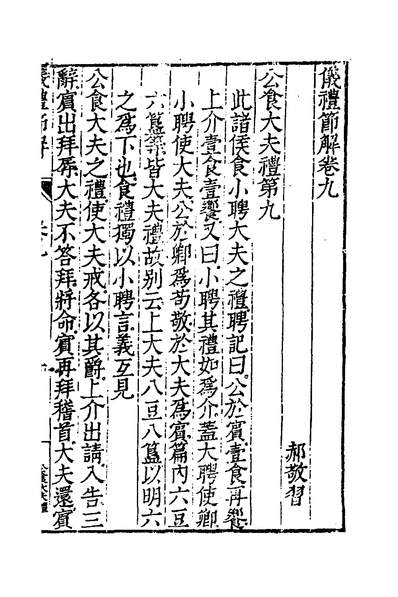 儀禮節解卷九
郝敬習
公食大夫禮第九
此諸侯食小聘大夫之禮聘記曰公於賓壹食再饗
上介壹食壹饗又曰小聘其禮如爲介蓋大聘使卿
小聘使大夫公於卿爲苟敬於大夫爲賓篇内六豆
六簋等皆大夫禮故别云上大夫八豆八簋以明六
之爲下也食禮獨以小聘言義互見
公食大夫之禮使大夫戒各以其爵上介出請入告三
辭賓出拜辱大夫不答拜將命賓再拜稽首大夫還賓